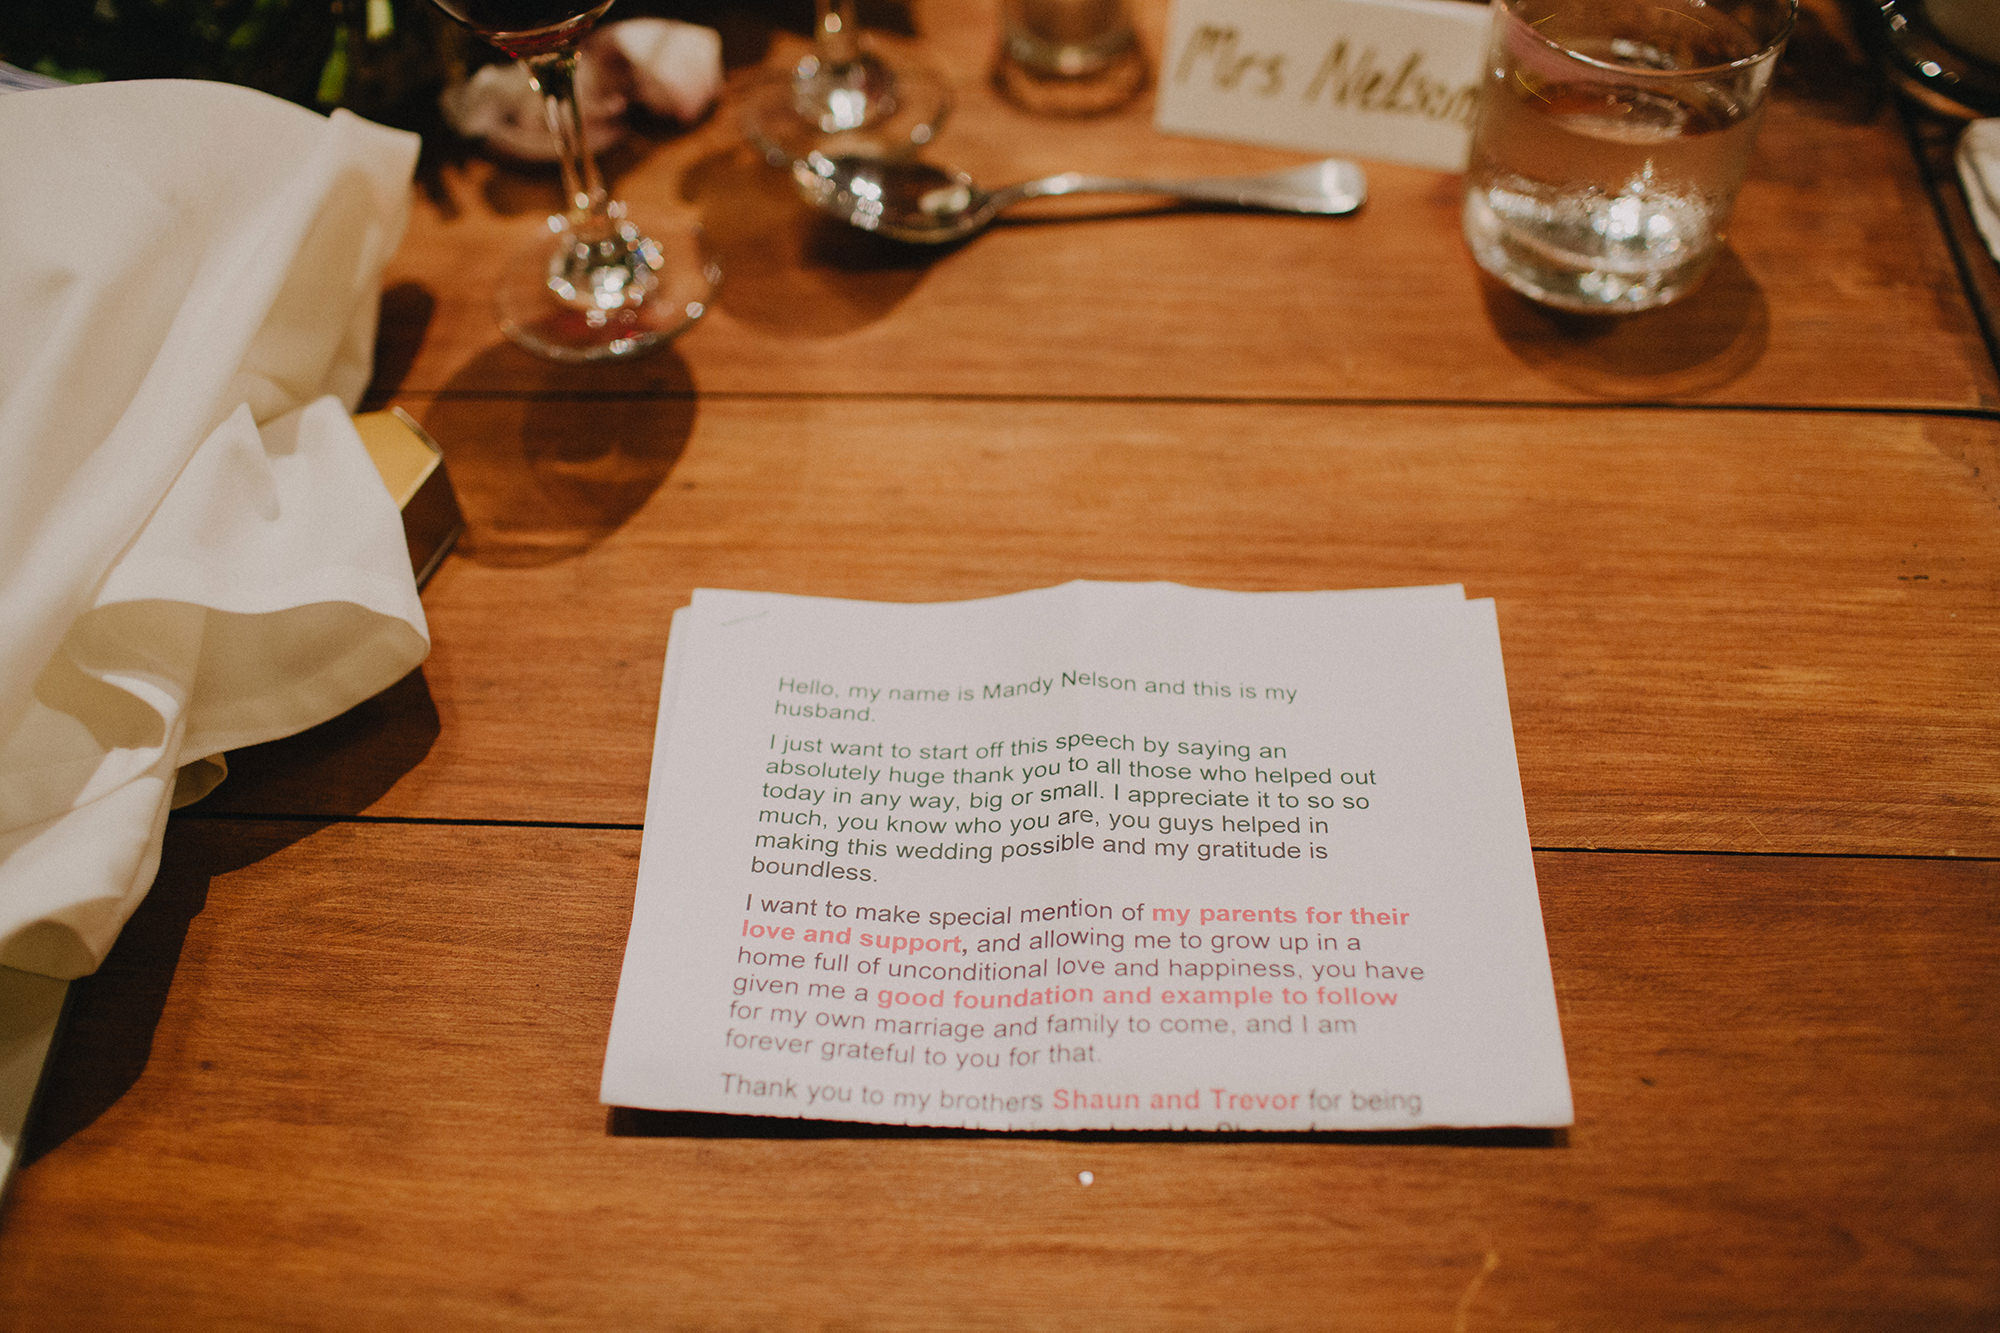 Mrs Nelson
Hello, my name is Mandy Nelson and this is my
husband.
I just want to start off this speech by saying an
absolutely huge thank you to all those who helped out
today in any way, big or small. I appreciate it to so so
much, you know who you are, you guys helped in
making this wedding possible and my gratitude is
boundless.
I want to make special mention of my parents for their
love and support, and allowing me to grow up in a
home full of unconditional love and happiness, you have
given me a good foundation and example to follow
for my own marriage and family to come, and I am
forever grateful to you for that.
Thank you to my brothers Shaun and Trevor for being